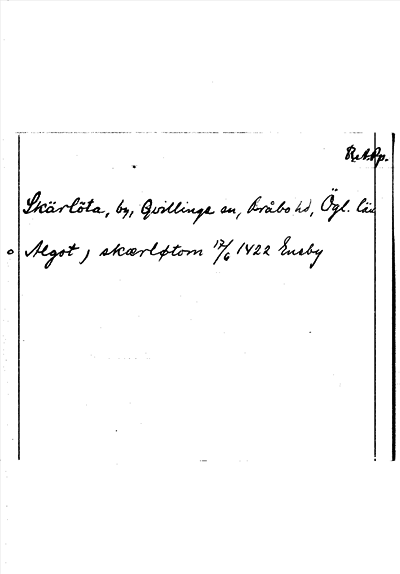 RA Pp.
Skärlöta, by, Qvillinge sn, Bråbo hd, Ögl. län
Algot j skærløtom 17/6 1422 Ensby